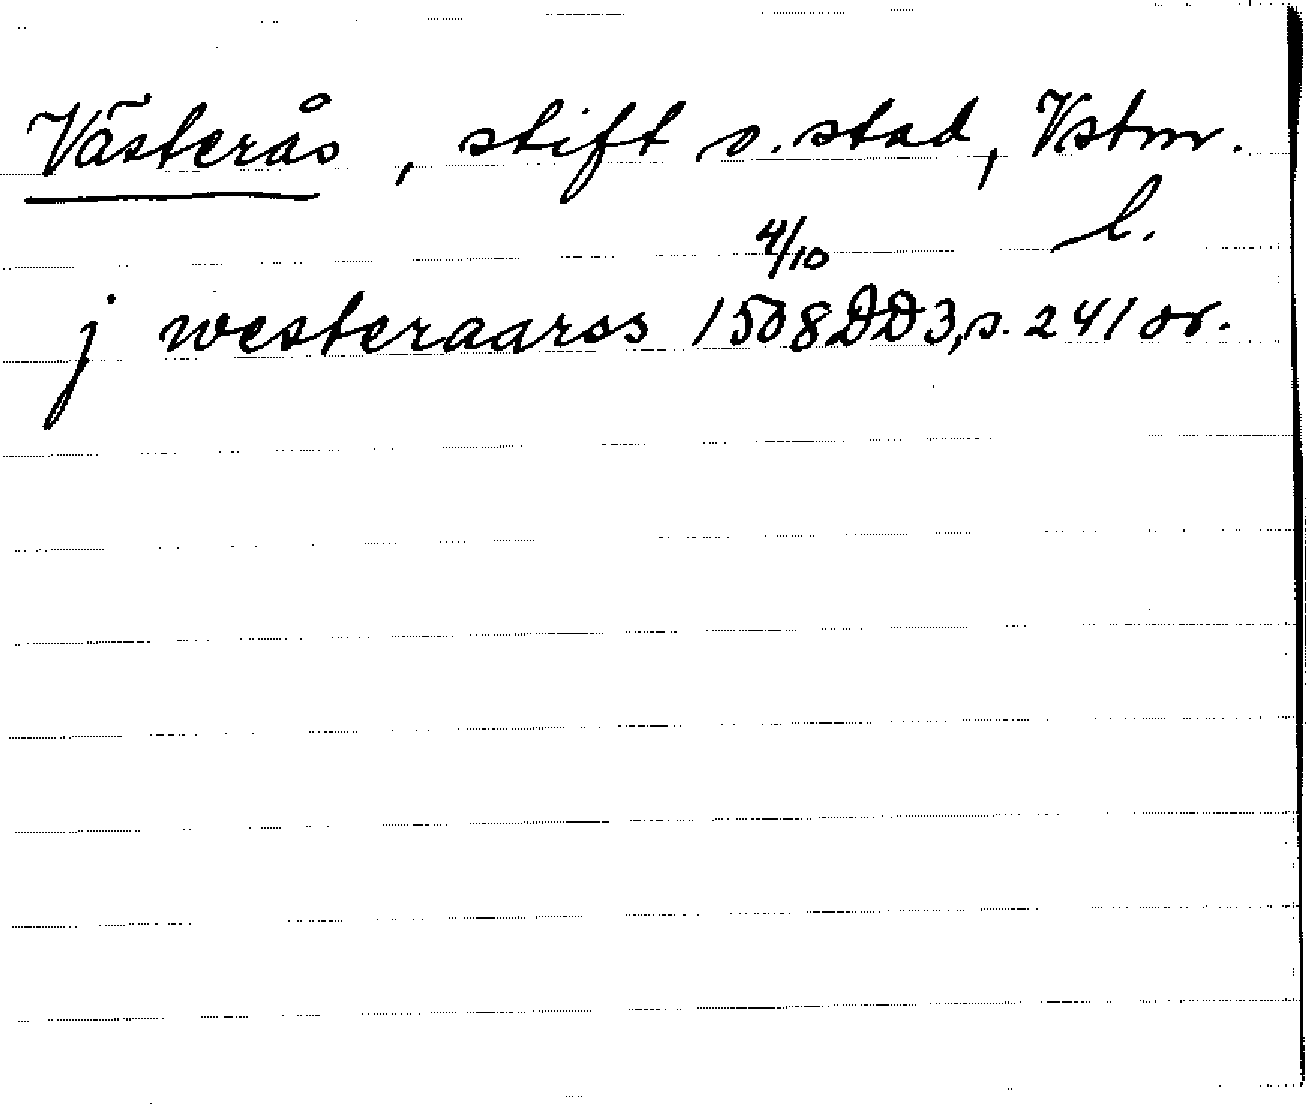 Västerås, stift o. stad, Vstm.
l.
4/10
j westeraarss 1508 DD3, s. 241 or.